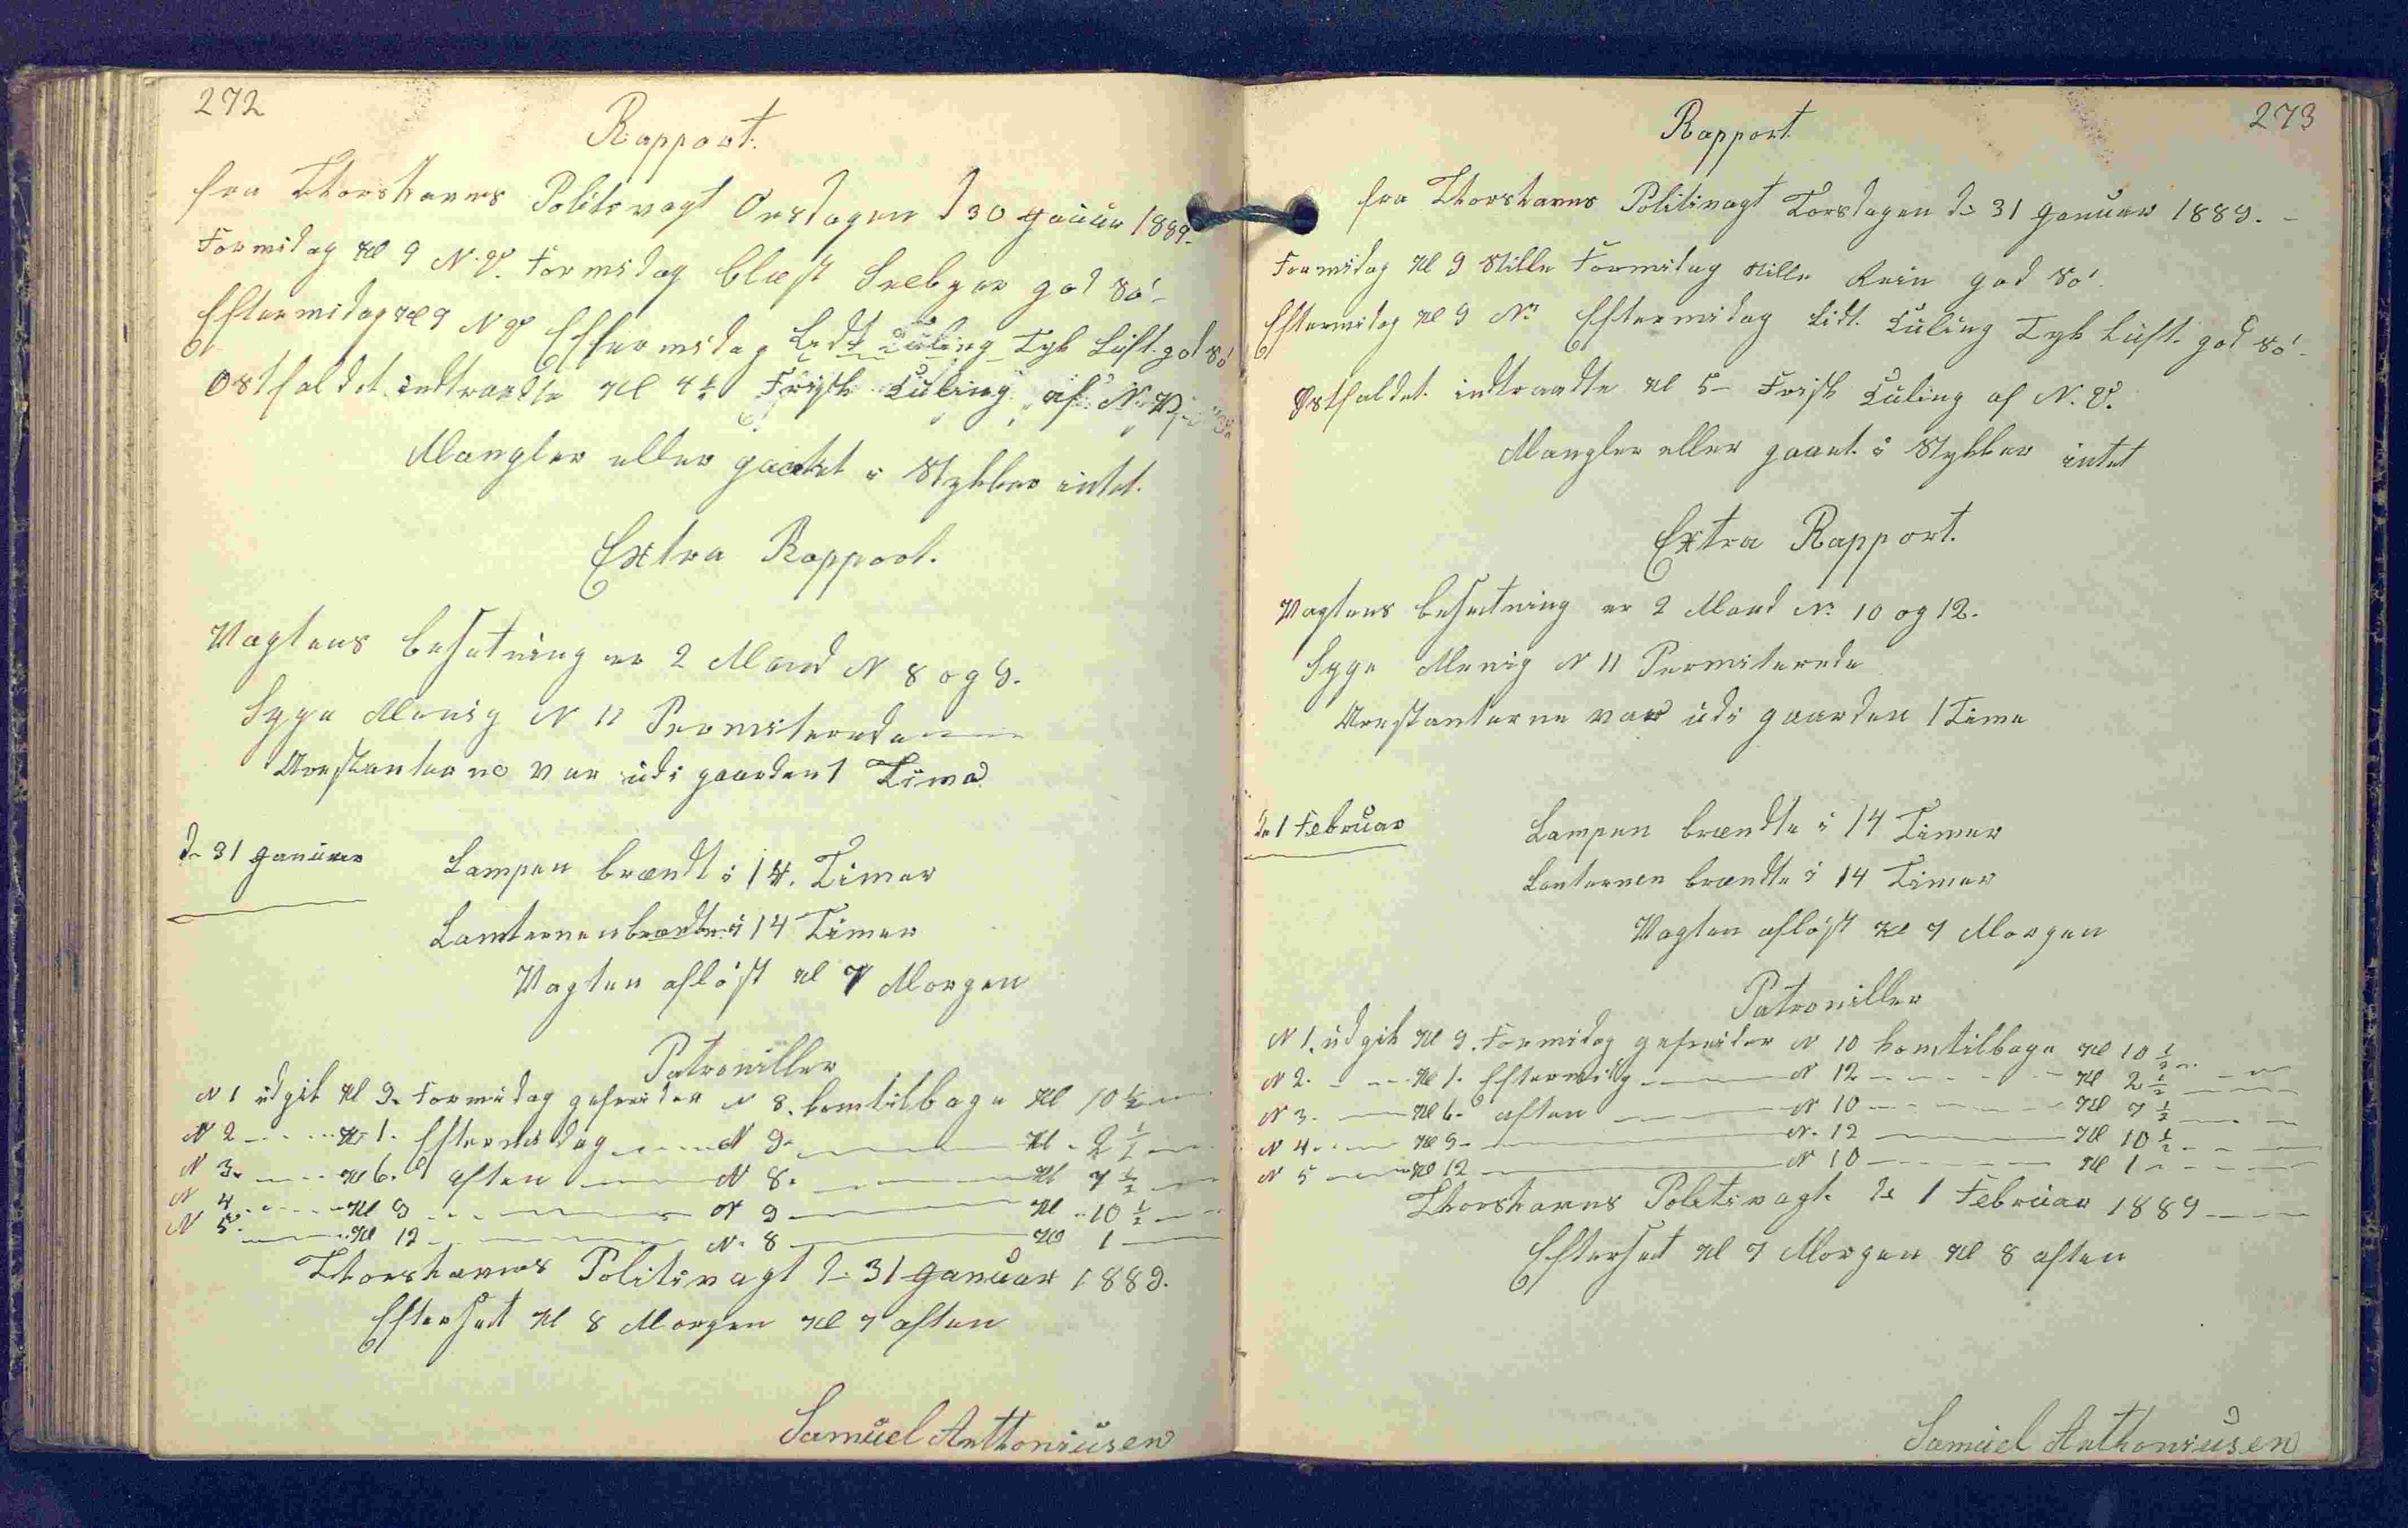 272
Rapport.
fra Thorshavns Politivagt Onsdagen d 30 Januar 1889.
Formidag Kl 9 N.V. Formidag blæst Seelbyer god Sö
Eftermidag Kl 9 N V Eftermidag Lidt Kuling Tyk Luft. god Sö
Ostfaldet indtraadte Kl 4½ Frisk Kuling af N. V.
Mangler eller gaaet i Stykker intet.
Extra Rapport.
Vagtens besetning er 2 Mand N 8 og 9.
Syge Menig N 11 Permiterede
Arrestanterne var udi gaarden 1 Time
d. 31 Januar
Lampen brændt i 14. Timer
Lanternen brændte i 14 Timer
Vagten aflöst Kl 7 Morgen
Patroniller
N 1 udgik Kl 9. Formidag gefreider N 8. komtilbage Kl 10½
N 2 Kl 1. Eftermidag N 9. Kl. 2½
N 3. Kl 6. aften N 8. Kl 7½
N 4. Kl 9 N 9 Kl 10½
N 5. Kl 12 N. 8 Kl 1
Thorshavns Politivagt d. 31 Januar 1889.
Efterset Kl 8 Morgen Kl 7 aften
Samuel Anthoniusen
273
Rapport
fra Thorshavns Politivagt Torsdagen d. 31 Januar 1889.
Formidag Kl 9 Stille Formidag stille Rein god Sö.
Eftermidag Kl 9 N. Eftermidag Lidt. Kuling Tyk Luft. god Sö.
Ostfaldet. indtraadte Kl 5 Frisk Kuling af N. V.
Mangler eller gaaet. i Stykker intet
Extra Rapport.
Vagtens besetning er 2 Mand N. 10 og 12.
Syge Menig N 11 Permiterede
Arrestanterne var udi gaarden 1 Time
d. 1 Februar
Lampen brændte i 14 Timer
Lanternen brændte i 14 Timer
Vagten aflöst Kl 7 Morgen
Patroniller
N 1. udgik Kl 9. Formidag gefreider N 10 komtilbage Kl 10½
N 2. Kl 1. Eftermidg N 12 Kl 2½
N 3. Kl 6. aften N 10 Kl 7½
N 4. Kl 9 N. 12 Kl 10½
N 5 Kl 12 N 10 Kl 1
Thorshavns Politivagt. d. 1 Februar 1889
Efterset Kl 7 Morgen Kl 8 aften
Samuel Anthoniusen